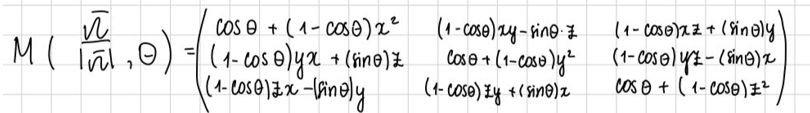 M( n̄/|n̄| , θ) = ( cosθ + (1-cosθ)x² (1-cosθ)xy-sinθ·z (1-cosθ)xz+(sinθ)y
(1-cosθ)yx + (sinθ)z cosθ+(1-cosθ)y² (1-cosθ)yz-(sinθ)x
(1-cosθ)zx-(sinθ)y (1-cosθ)zy+(sinθ)x cosθ + (1-cosθ)z² )